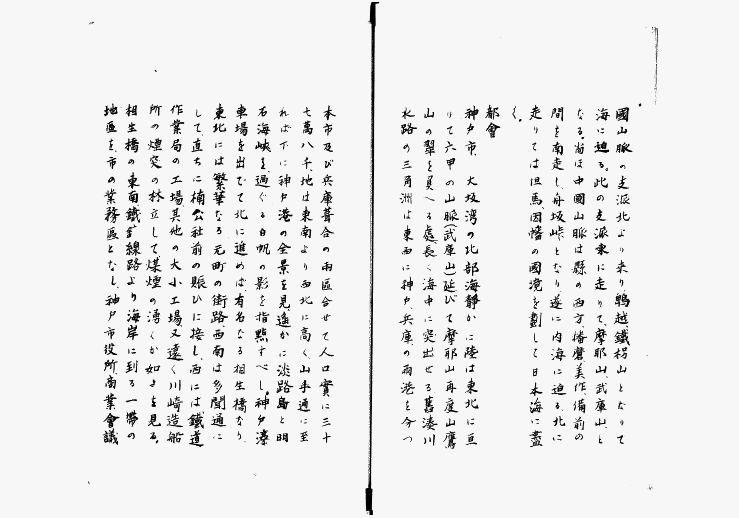 國山脈の支派北より來り鵯越、鐵枴山となりて
海に迫る。此の支派東に走りて摩耶山、武庫山と
なる。尚ほ中國山脈は縣の西方、播磨、美作、備前の
間を南走し、舟坂峠となり、遂に内海に迫る。北に
走りては但馬、因幡の國境を劃して日本海に盡
く。
都會
神戸市、大坂灣の北部海靜かに陸は東北に亘
りて六甲の山脈(武庫山)延びて摩耶山再度山鷹
山の翠を負へる處、長く海中に突出せる舊湊川
水路の三角洲は東西に神戸、兵庫の兩港を分つ
本市及び兵庫葺合の兩區合せて人口實に三十
七萬八千、地は東南より西北に高く、山手通に至
れば下に神戸港の全景を見、遙かに淡路島と明
石海峽を過ぐる白帆の影を指點すべし。神戸停
車場を出でて北に進めば、有名なる相生橋なり、
東北には繁華なる元町の街路、西南は多聞通に
して直ちに楠公社前の賑ひに接し、西には鐵道
作業局の工場其他の大小工場又遠く川崎造船
所の煙突の林立して煤煙の湧くが如きを見る。
相生橋の東南鐵道線路より海岸に到る一帶の
地區を、市の業務區となし、神戸市役所、商業會議